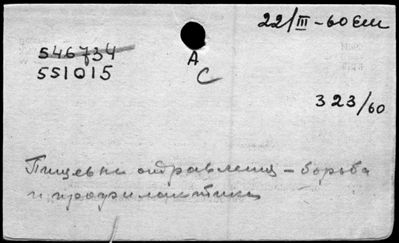 22/III - 60 Ем
546734
551015
А
С
323/60
Пищевни отравления - борба
и профилактика